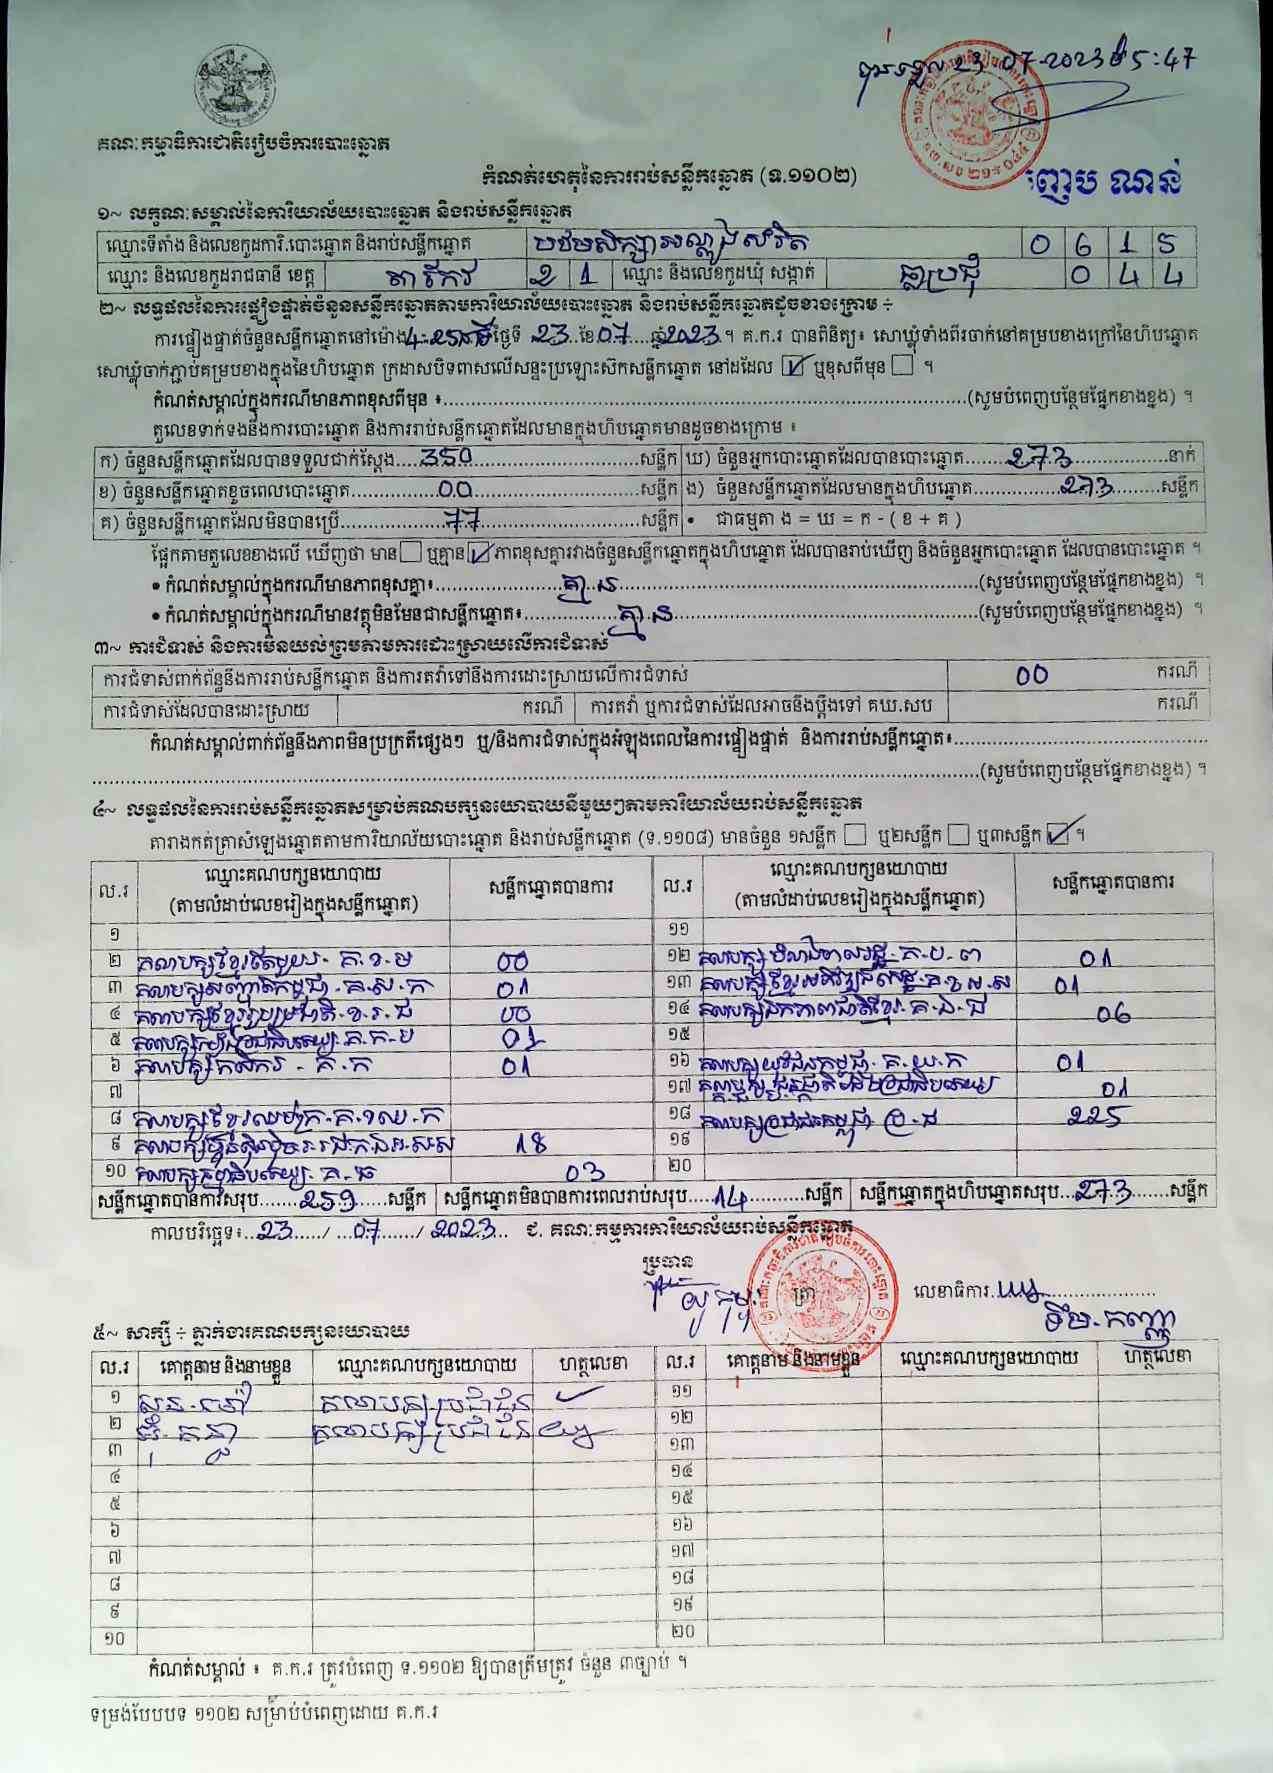 23 07-2023 5:47
គណៈកម្មាធិការជាតិរៀបចំការបោះឆ្នោត
កំណត់ហេតុនៃការរាប់សន្លឹកឆ្នោត (ទ.១១០២)
ញេប ណន់
១~ លក្ខណៈសម្គាល់នៃការិយាល័យបោះឆ្នោត និងរាប់សន្លឹកឆ្នោត
ឈ្មោះទីតាំង និងលេខកូដការិ.បោះឆ្នោត និងរាប់សន្លឹកឆ្នោត បឋមសិក្សាអណ្តូងសំរិត 0 6 1 5
ឈ្មោះ និងលេខកូដរាជធានី ខេត្ត តាកែវ 2 1 ឈ្មោះ និងលេខកូដឃុំ សង្កាត់ ធ្លាប្រជុំ 0 4 4
២~ លទ្ធផលនៃការផ្ទៀងផ្ទាត់ចំនួនសន្លឹកឆ្នោតតាមការិយាល័យបោះឆ្នោត និងរាប់សន្លឹកឆ្នោតដូចខាងក្រោម ÷
ការផ្ទៀងផ្ទាត់ចំនួនសន្លឹកឆ្នោតនៅម៉ោង 4:25នាទី ថ្ងៃទី 23 ខែ 07 ឆ្នាំ 2023 ។ គ.ក.រ បានពិនិត្យ៖ សោឃ្លុំទាំងពីរចាក់នៅគម្របខាងក្រៅនៃហិបឆ្នោត
សោឃ្លុំចាក់ភ្ជាប់គម្របខាងក្នុងនៃហិបឆ្នោត ក្រដាសបិទពាសលើសន្ទះប្រឡោះស៊កសន្លឹកឆ្នោត នៅដដែល ☑ ឬខុសពីមុន ☐ ។
កំណត់សម្គាល់ក្នុងករណីមានភាពខុសពីមុន ៖..........(សូមបំពេញបន្ថែមផ្នែកខាងខ្នង) ។
តួលេខទាក់ទងនឹងការបោះឆ្នោត និងការរាប់សន្លឹកឆ្នោតដែលមានក្នុងហិបឆ្នោតមានដូចខាងក្រោម ៖
ក) ចំនួនសន្លឹកឆ្នោតដែលបានទទួលជាក់ស្តែង....350....សន្លឹក ឃ) ចំនួនអ្នកបោះឆ្នោតដែលបានបោះឆ្នោត....273....នាក់
ខ) ចំនួនសន្លឹកឆ្នោតខូចពេលបោះឆ្នោត....00....សន្លឹក ង) ចំនួនសន្លឹកឆ្នោតដែលមានក្នុងហិបឆ្នោត....273....សន្លឹក
គ) ចំនួនសន្លឹកឆ្នោតដែលមិនបានប្រើ....77....សន្លឹក • ជាធម្មតា ង = ឃ = ក - ( ខ + គ )
ផ្អែកតាមតួលេខខាងលើ ឃើញថា មាន ☐ ឬគ្មាន ☑ ភាពខុសគ្នារវាងចំនួនសន្លឹកឆ្នោតក្នុងហិបឆ្នោត ដែលបានរាប់ឃើញ និងចំនួនអ្នកបោះឆ្នោត ដែលបានបោះឆ្នោត ។
• កំណត់សម្គាល់ក្នុងករណីមានភាពខុសគ្នា៖....គ្មាន....(សូមបំពេញបន្ថែមផ្នែកខាងខ្នង) ។
• កំណត់សម្គាល់ក្នុងករណីមានវត្ថុមិនមែនជាសន្លឹកឆ្នោត៖....គ្មាន....(សូមបំពេញបន្ថែមផ្នែកខាងខ្នង) ។
៣~ ការជំទាស់ និងការមិនយល់ព្រមតាមការដោះស្រាយលើការជំទាស់
ការជំទាស់ពាក់ព័ន្ធនឹងការរាប់សន្លឹកឆ្នោត និងការតវ៉ាទៅនឹងការដោះស្រាយលើការជំទាស់ 00 ករណី
ការជំទាស់ដែលបានដោះស្រាយ ករណី ការតវ៉ា ឬការជំទាស់ដែលអាចនឹងប្តឹងទៅ គឃ.សប ករណី
កំណត់សម្គាល់ពាក់ព័ន្ធនឹងភាពមិនប្រក្រតីផ្សេងៗ ឬ/និងការជំទាស់ក្នុងអំឡុងពេលនៃការផ្ទៀងផ្ទាត់ និងការរាប់សន្លឹកឆ្នោត៖..........
..........(សូមបំពេញបន្ថែមផ្នែកខាងខ្នង) ។
៤~ លទ្ធផលនៃការរាប់សន្លឹកឆ្នោតសម្រាប់គណបក្សនយោបាយនីមួយៗតាមការិយាល័យរាប់សន្លឹកឆ្នោត
តារាងកត់ត្រាសំឡេងឆ្នោតតាមការិយាល័យបោះឆ្នោត និងរាប់សន្លឹកឆ្នោត (ទ.១១០៨) មានចំនួន ១សន្លឹក ☐ ឬ២សន្លឹក ☐ ឬ៣សន្លឹក ☑ ។
ល.រ ឈ្មោះគណបក្សនយោបាយ សន្លឹកឆ្នោតបានការ ល.រ ឈ្មោះគណបក្សនយោបាយ សន្លឹកឆ្នោតបានការ
(តាមលំដាប់លេខរៀងក្នុងសន្លឹកឆ្នោត) (តាមលំដាប់លេខរៀងក្នុងសន្លឹកឆ្នោត)
១ ១១
២ គណបក្សខ្មែរតែមួយ - គ.ខ.ម 00 ១២ គណបក្ស គ.ប.ព 01
៣ គណបក្សសញ្ជាតិកម្ពុជា - គ.ស.ក 01 ១៣ គណបក្សខ្មែរអភិវឌ្ឍន៍សេដ្ឋ 01
៤ គណបក្សខ្មែររួបរួមជាតិ - ខ.រ.ជ 00 ១៤ គណបក្សឯកភាពជាតិខ្មែរ - គ.ឯ.ជ 06
៥ គណបក្ស 01 ១៥
៦ គណបក្សកសិករ - គ.ក 01 ១៦ គណបក្សយុវជនកម្ពុជា - គ.យ.ក 01
៧ ១៧ គណបក្ស 01
៨ គណបក្សខ្មែរឈប់ក្រ - គ.ខឈ.ក ១៨ គណបក្សប្រជាជនកម្ពុជា - ប្រ.ជ 225
៩ គណបក្សហ៊្វុនស៊ិនប៉ិច 18 ១៩
១០ គណបក្សធម្មាធិបតេយ្យ - គ.ធ 03 ២០
សន្លឹកឆ្នោតបានការសរុប....259....សន្លឹក សន្លឹកឆ្នោតមិនបានការពេលរាប់សរុប....14....សន្លឹក សន្លឹកឆ្នោតក្នុងហិបឆ្នោតសរុប...273....សន្លឹក
កាលបរិច្ឆេទ៖..23..../...07..../ 2023... ជ. គណៈកម្មការការិយាល័យរាប់សន្លឹកឆ្នោត
ប្រធាន
ត្រា លេខាធិការ
ទឹម.កញ្ញា
៥~ សាក្សី ÷ ភ្នាក់ងារគណបក្សនយោបាយ
ល.រ គោត្តនាម និងនាមខ្លួន ឈ្មោះគណបក្សនយោបាយ ហត្ថលេខា ល.រ គោត្តនាម និងនាមខ្លួន ឈ្មោះគណបក្សនយោបាយ ហត្ថលេខា
១ គណបក្សប្រជាជន ១១
២ គណបក្សប្រជាជន ១២
៣ ១៣
៤ ១៤
៥ ១៥
៦ ១៦
៧ ១៧
៨ ១៨
៩ ១៩
១០ ២០
កំណត់សម្គាល់ ៖ គ.ក.រ ត្រូវបំពេញ ទ.១១០២ ឱ្យបានត្រឹមត្រូវ ចំនួន ៣ច្បាប់ ។
ទម្រង់បែបបទ ១១០២ សម្រាប់បំពេញដោយ គ.ក.រ